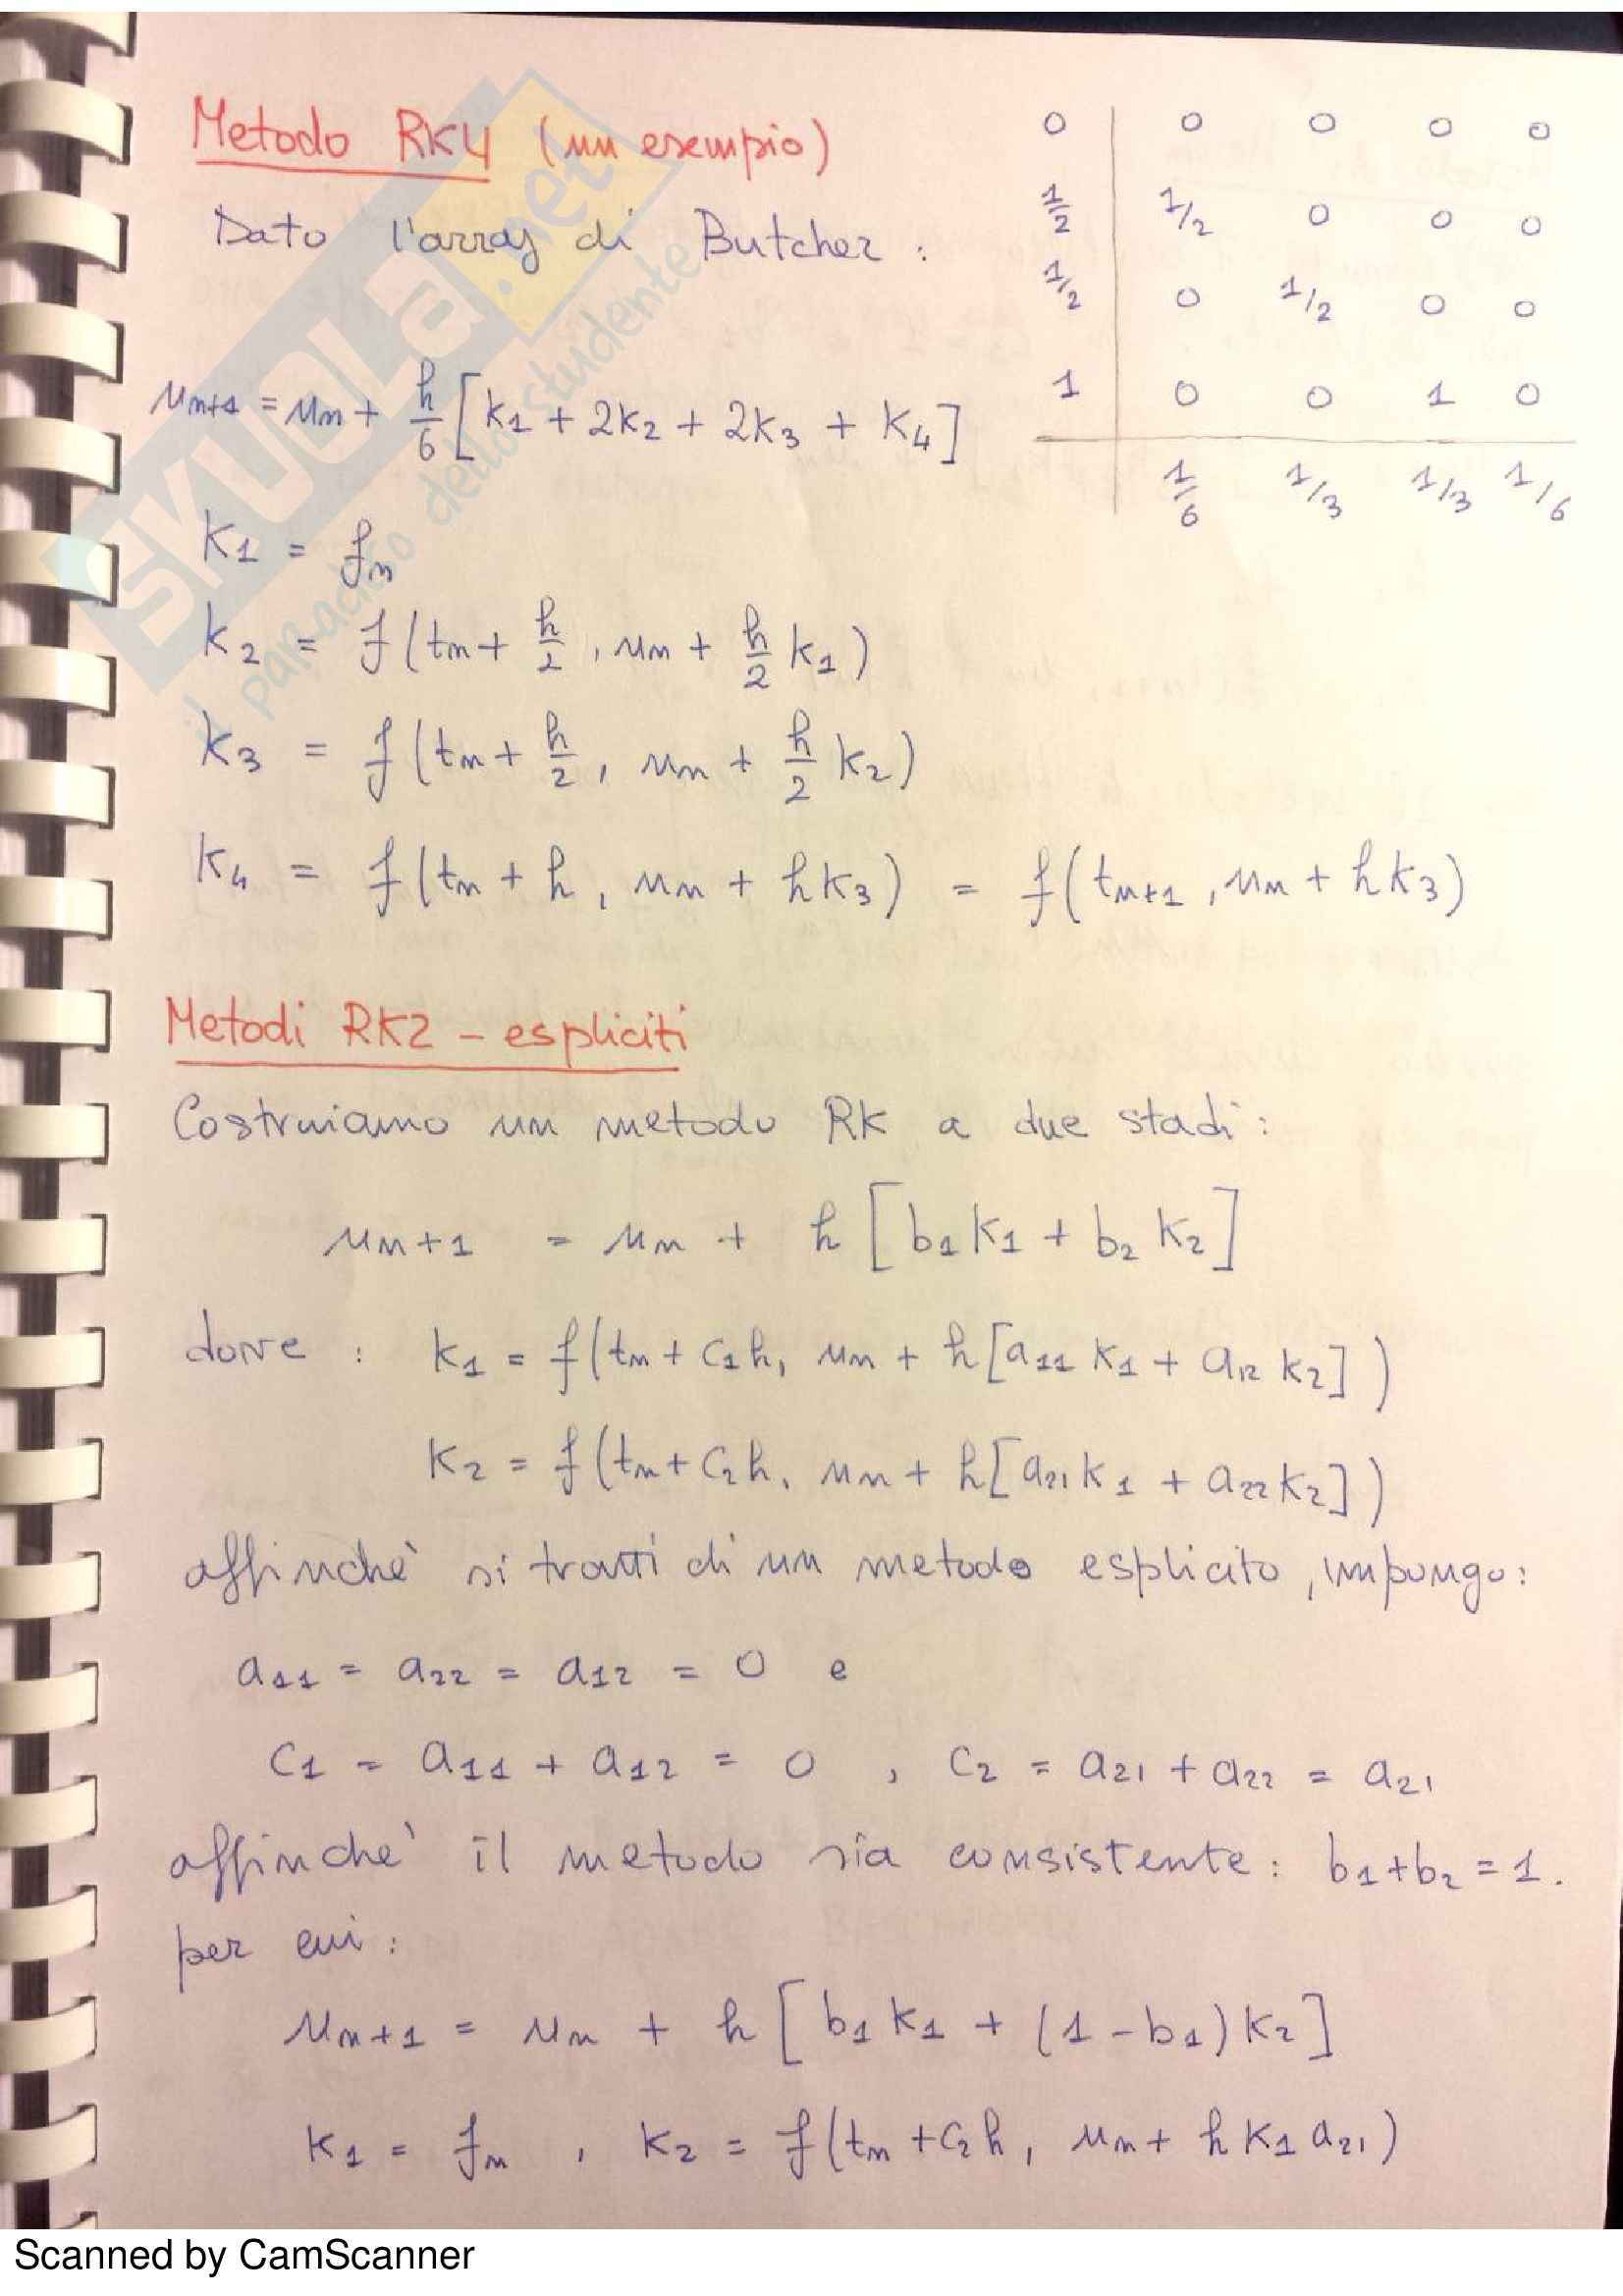 Metodo RK4 (un esempio)
Dato l'array di Butcher :
0 | 0 0 0 0
1/2 | 1/2 0 0 0
1/2 | 0 1/2 0 0
1 | 0 0 1 0
| 1/6 1/3 1/3 1/6
u_{n+1} = u_n + h/6 [K_1 + 2K_2 + 2K_3 + K_4]
K_1 = f_n
K_2 = f(t_n + h/2 , u_n + h/2 K_1)
K_3 = f(t_n + h/2 , u_n + h/2 K_2)
K_4 = f(t_n + h , u_n + hK_3) = f(t_{n+1} , u_n + hK_3)
Metodi RK2 - espliciti
Costruiamo un metodo RK a due stadi :
u_{n+1} = u_n + h [b_1 K_1 + b_2 K_2]
dove : K_1 = f(t_n + c_1 h, u_n + h[a_{11} K_1 + a_{12} K_2])
K_2 = f(t_n + c_2 h, u_n + h[a_{21} K_1 + a_{22} K_2])
affinchè si tratti di un metodo esplicito , impongo :
a_{11} = a_{22} = a_{12} = 0 e
c_1 = a_{11} + a_{12} = 0 , c_2 = a_{21} + a_{22} = a_{21}
affinche' il metodo sia consistente : b_1 + b_2 = 1 .
per cui :
u_{n+1} = u_n + h [b_1 K_1 + (1 - b_1) K_2]
K_1 = f_n , K_2 = f(t_n + c_2 h , u_n + h K_1 a_{21})
SKUOLA.net
il paradiso dello studente
Scanned by CamScanner